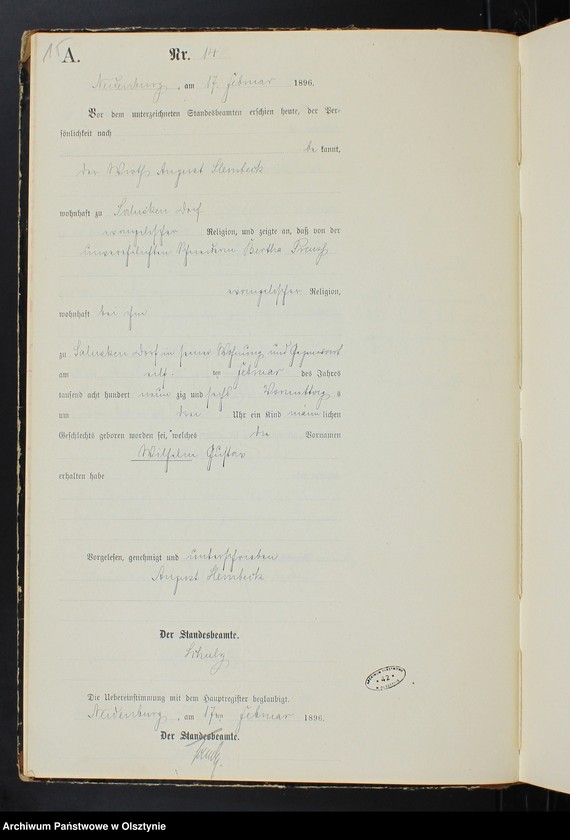 A.
Nr. 14
Neidenburg, am 17 Februar 1896.
Vor dem unterzeichneten Standesbeamten erschien heute, der Per-
sönlichkeit nach
be kannt,
der Wirth August
wohnhaft zu Salusken Dorf
evangelischer Religion, und zeigte an, daß von der
unverehelichten Bertha Preuß
evangelischer Religion,
wohnhaft bei ihm
zu Salusken Dorf in seiner Wohnung und Gegenwart
am elf ten Februar des Jahres
tausend acht hundert neun zig und sechs Vormittag s
um drei Uhr ein Kind männ lichen
Geschlechts geboren worden sei, welches die Vornamen
Wilhelm Gustav
erhalten habe
Vorgelesen, genehmigt und unterschrieben
August
Der Standesbeamte.
Schulz
Die Uebereinstimmung mit dem Hauptregister beglaubigt.
Neidenburg, am 17ten Februar 1896.
Der Standesbeamte.
42
Archiwum Państwowe w Olsztynie